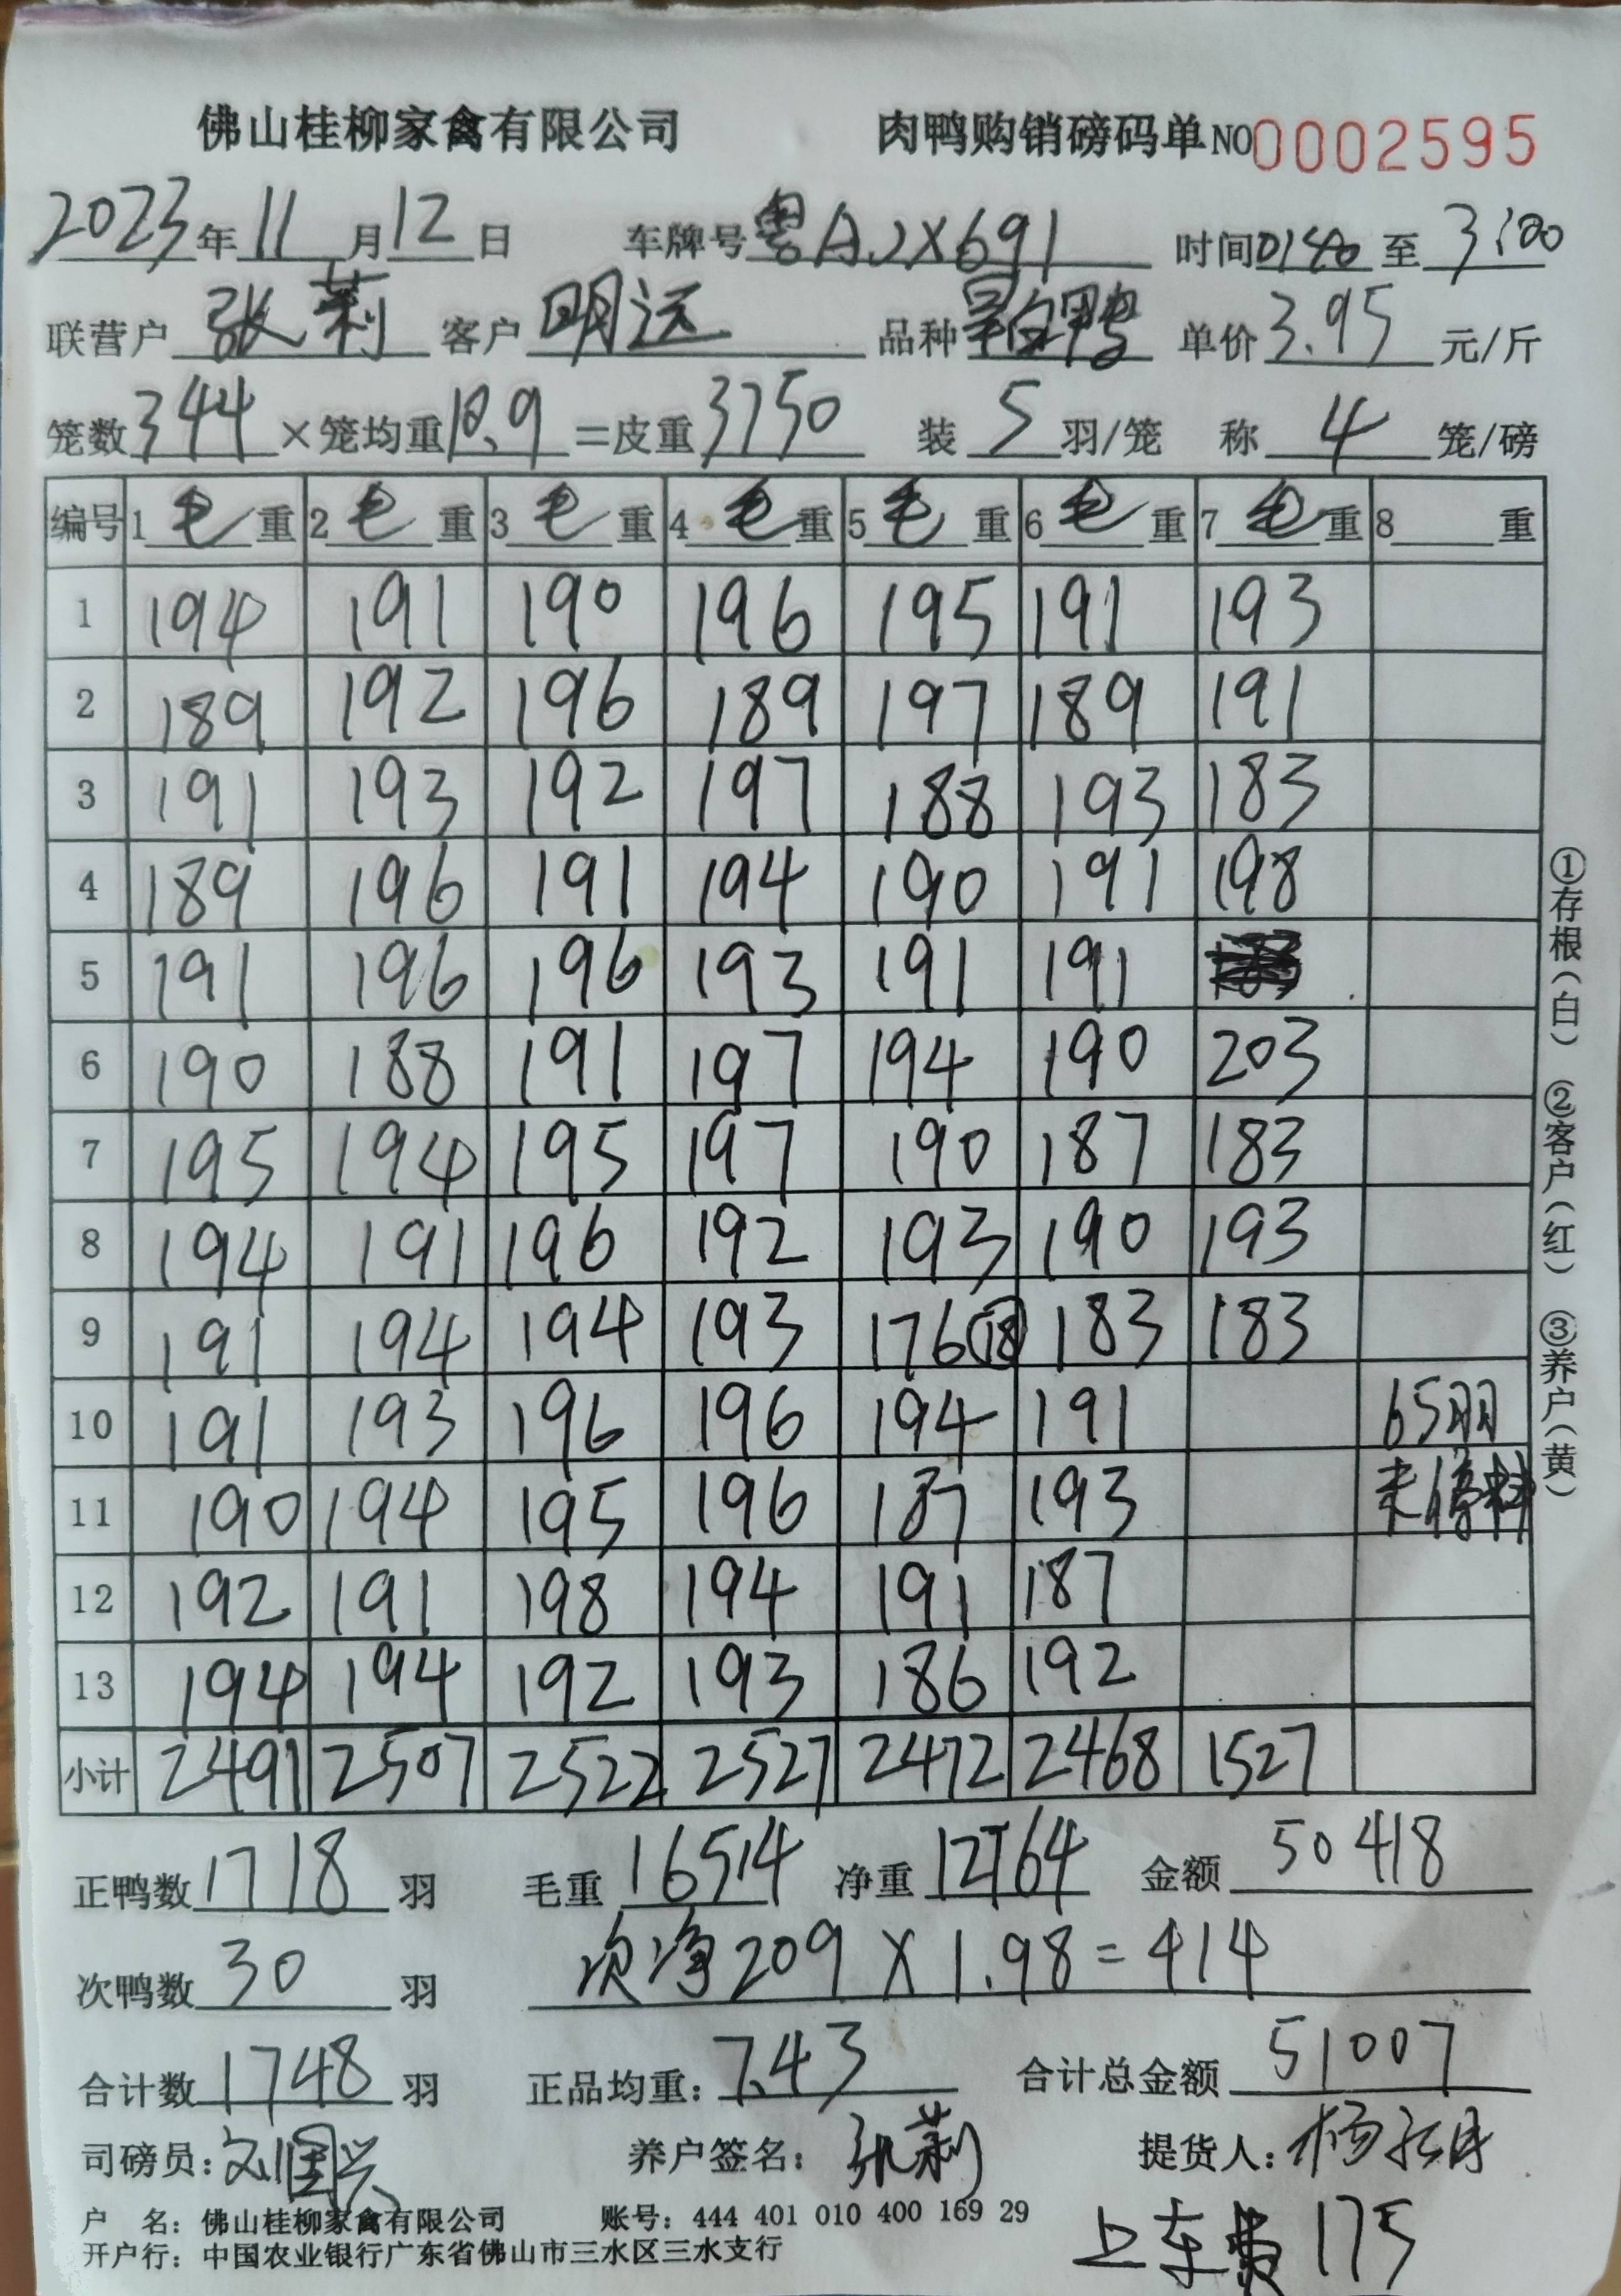 佛山桂柳家禽有限公司 肉鸭购销磅码单 NO 0002595
2023年11月12日 车牌号粤A 2X691 时间0140至3:00
联营户 张莉 客户 明远 品种 鸭 单价3.95元/斤
笼数344×笼均重10.9=皮重3750 装5羽/笼 称4笼/磅
编号 1毛重 2毛重 3毛重 4毛重 5毛重 6毛重 7毛重 8 重
1 194 191 190 196 195 191 193
2 189 192 196 189 197 189 191
3 191 193 192 197 188 193 183
4 189 196 191 194 190 191 198
5 191 196 196 193 191 191
6 190 188 191 197 194 190 203
7 195 194 195 197 190 187 183
8 194 191 196 192 193 190 193
9 191 194 194 193 176⑱ 183 183
10 191 193 196 196 194 191 65羽
11 190 194 195 196 187 193 未停料
12 192 191 198 194 191 187
13 194 194 192 193 186 192
小计 2491 2507 2522 2527 2472 2468 1527
正鸭数1718羽 毛重16514 净重12764 金额50418
次鸭数30羽 次净209×1.98=414
合计数1748羽 正品均重:7.43 合计总金额51007
司磅员:刘国兴 养户签名:张莉 提货人:杨
户 名:佛山桂柳家禽有限公司 账号:444 401 010 400 169 29
开户行:中国农业银行广东省佛山市三水区三水支行
上车费175
①存根(白) ②客户(红) ③养户(黄)